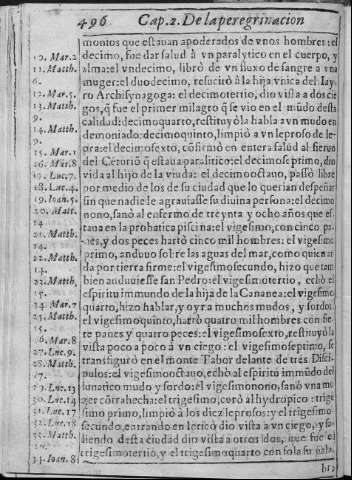 496 Cap.2. De la peregrinacion
montos que estauan apoderados de vnos hombres: el
10. Mar.2 decimo, fue dar salud à vn paralytico en el cuerpo, y
11. Matth. alma: el vndecimo, librò de vn fluxo de sangre a vna
muger: el duodecimo, resucitò à la hija vnica del Iay-
12. Matth. ro Archisynagoga: el decimotertio, dio vista a dos cie
13. Matth. gos, q̃ fue el primer milagro q̃ se vio en el mũdo desta
9. calidad: decimoquarto, restituyò la habla a vn mudo en
14. Matth. demoniado: decimoquinto, limpiò a vn leproso de le-
15. Mar.1 pra: el decimosexto, cõfirmò en entera salud al sieruo
16. Mat.8 del Cẽturiõ q̃ estaua paralitico: el decimoseptimo, dio
17. Luc.7. vida al hijo de la viuda: el decimooctauo, passò libre
18. Luc.4. por medio de los de su ciudad que lo querian despeñar
19. Ioan.5. sin que nadie le agrauiasse su diuina persona: el decimo
20. Matt. nono, sanò al enfermo de treynta y ocho años que es-
taua en la probatica piscina: el vigesimo, con cinco pa-
21. Matth. nes, y dos peces hartò cinco mil hombres: el vigesimo
14. primo, anduuo sobre las aguas del mar, como quien an
22. Matth. da por tierra firme: el vigesimosecundo, hizo que tam
14. bien anduuiesse san Pedro: el vigesimotertio, echò el
15. espiritu immundo de la hija de la Cananea: el vigesimo
24. Mar.7 quarto, hizo hablar, y oyr a muchos mudos, y sordos:
25. Matth. el vigesimoquinto, hartò quatro mil hombres con sie
15. te panes y quatro peces: el vigesimosexto, restituyò la
26. Mar.8 vista poco a poco à vn ciego: el vigesimoseptimo, se
27. Luc.9. transfigurò en el monte Tabor delante de tres Disci-
28. Matth. pulos: el vigesimoctauo, echò al espiritu immũdo del
29. Luc.13 lunatico mudo y sordo: el vigesimonono, sanò vna mu
30. Luc.14 ger cõtrahecha: el trigesimo, corò al hydropico: trige
31. Luc.17 simo primo, limpiò à los diez leprosos: y el trigesimo
32. Luc.18 secundo, entrando en Iericò dio vista a vn ciego, y sa-
Matth. liendo desta ciudad dio vista a otros dos, que fue el
33. Ioan.8. trigesimotertio, y el trigesimoquarto con sola su pala-
bra